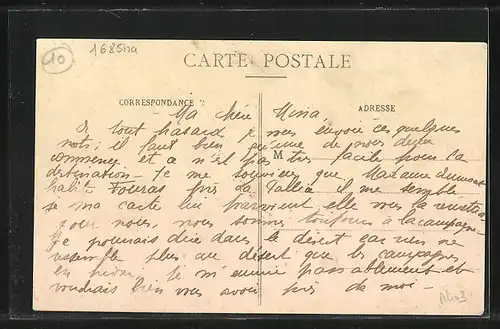 10
1685na
CARTE POSTALE
CORRESPONDANCE
ADRESSE
Ma chère Mina
A tout hasard je vous envoie ces quelques
mots; il faut bien qu'une de nous deux
M
commence et ce n'est pas très facile pour la
destination - Je me souviens que Madame
habite Fouras près La il me semble
si ma carte lui parvient elle vous la remettra
pour nous, nous sommes toujours à la campagne
Je pourrais dire dans le désert car rien ne
ressemble plus au désert que les campagnes
en hiver. Je m'ennuie passablement et
voudrais bien vous avoir près de moi -